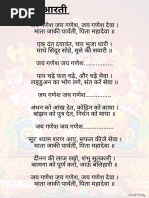 आरती
जय गणेश जय गणेश, जय गणेश देवा ।
माता जाकी पार्वती, पिता महादेवा ॥
एक दंत दयावंत, चार भुजा धारी ।
माथे सिंदूर सोहे, मूसे की सवारी ॥
जय गणेश जय गणेश................
पान चढ़े फल चढ़े, और चढ़े मेवा ।
लड्डुअन का भोग लगे, संत करें सेवा ॥
जय गणेश जय गणेश................
अंधन को आंख देत, कोढ़िन को काया ।
बांझन को पुत्र देत, निर्धन को माया ॥
'सूर' श्याम शरण आए, सफल कीजे सेवा ।
माता जाकी पार्वती, पिता महादेवा ॥
दीनन की लाज रखो, शंभु सुतकारी ।
कामना को पूर्ण करो, जाऊं बलिहारी ॥
जय गणेश जय गणेश, जय गणेश देवा ।
माता जाकी पार्वती, पिता महादेवा ॥